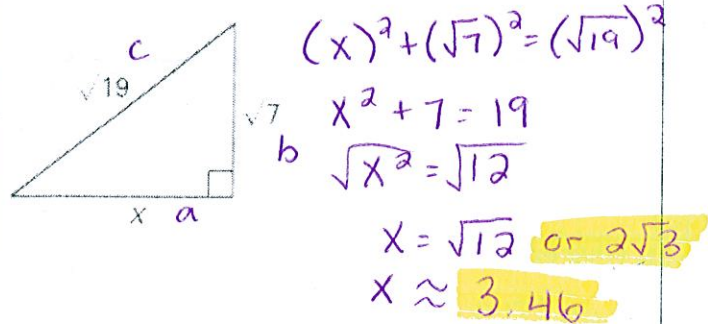 c
√19
√7
b
x a
(x)² + (√7)² = (√19)²
x² + 7 = 19
√x² = √12
x = √12 or 2√3
x ≈ 3.46